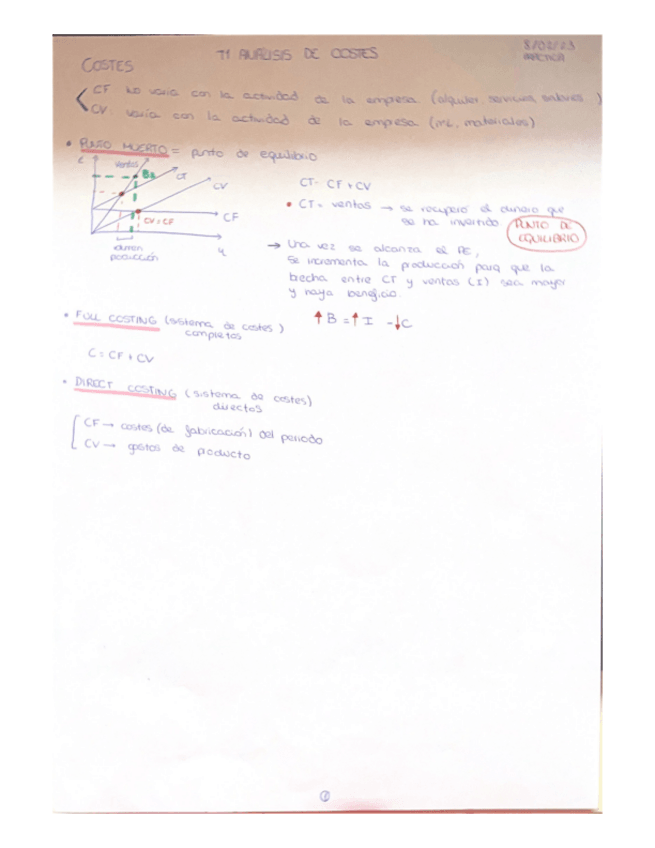 T1 ANÁLISIS DE COSTES
8/02/23
PRÁCTICA
COSTES
CF No varía con la actividad de la empresa (alquiler, servicios, salarios )
CV varía con la actividad de la empresa (m², materiales)
• PUNTO MUERTO = punto de equilibrio
€
Ventas
Bº
CT
CV
CV = CF
CF
volumen
producción
CT = CF + CV
• CT = ventas → se recuperó el dinero que
se ha invertido
PUNTO DE
EQUILIBRIO
→ Una vez se alcanza el PE,
se incrementa la producción para que la
brecha entre CT y ventas (I) sea mayor
y haya beneficio.
↑ B = ↑ I - ↓ C
• FULL COSTING (sistema de costes )
completos
C = CF + CV
• DIRECT COSTING (sistema de costes)
directos
CF → costes (de fabricación) del periodo
CV → gastos de producto
①